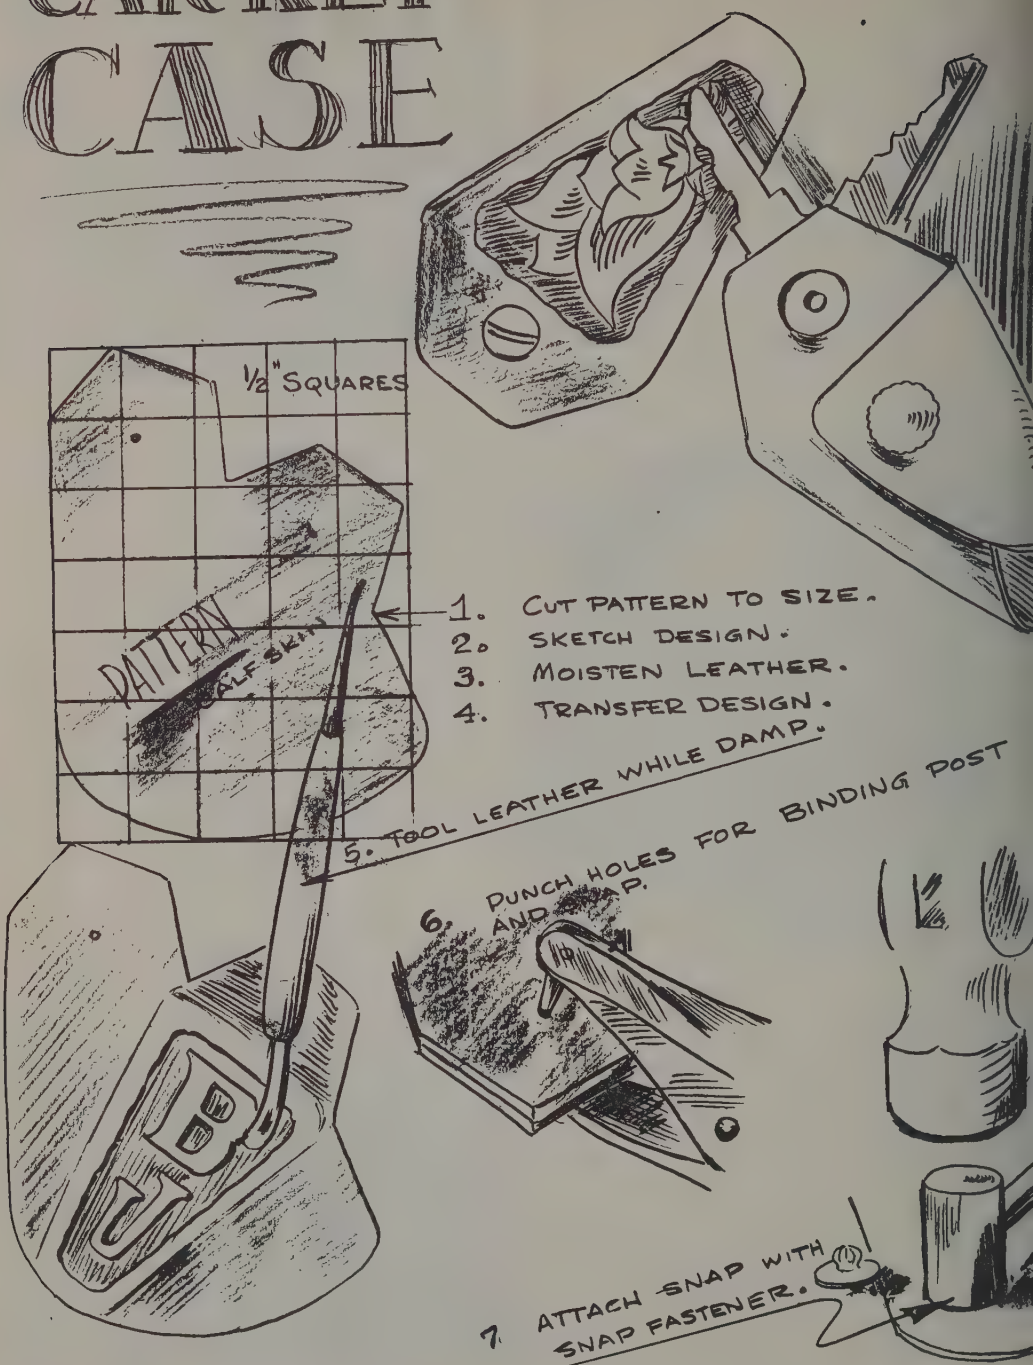 CASE
½" SQUARES
PATTERN
CALF SKIN
1. CUT PATTERN TO SIZE.
2. SKETCH DESIGN.
3. MOISTEN LEATHER.
4. TRANSFER DESIGN.
5. TOOL LEATHER WHILE DAMP.
6. PUNCH HOLES FOR BINDING POST
AND SNAP.
JB
7. ATTACH SNAP WITH
SNAP FASTENER.